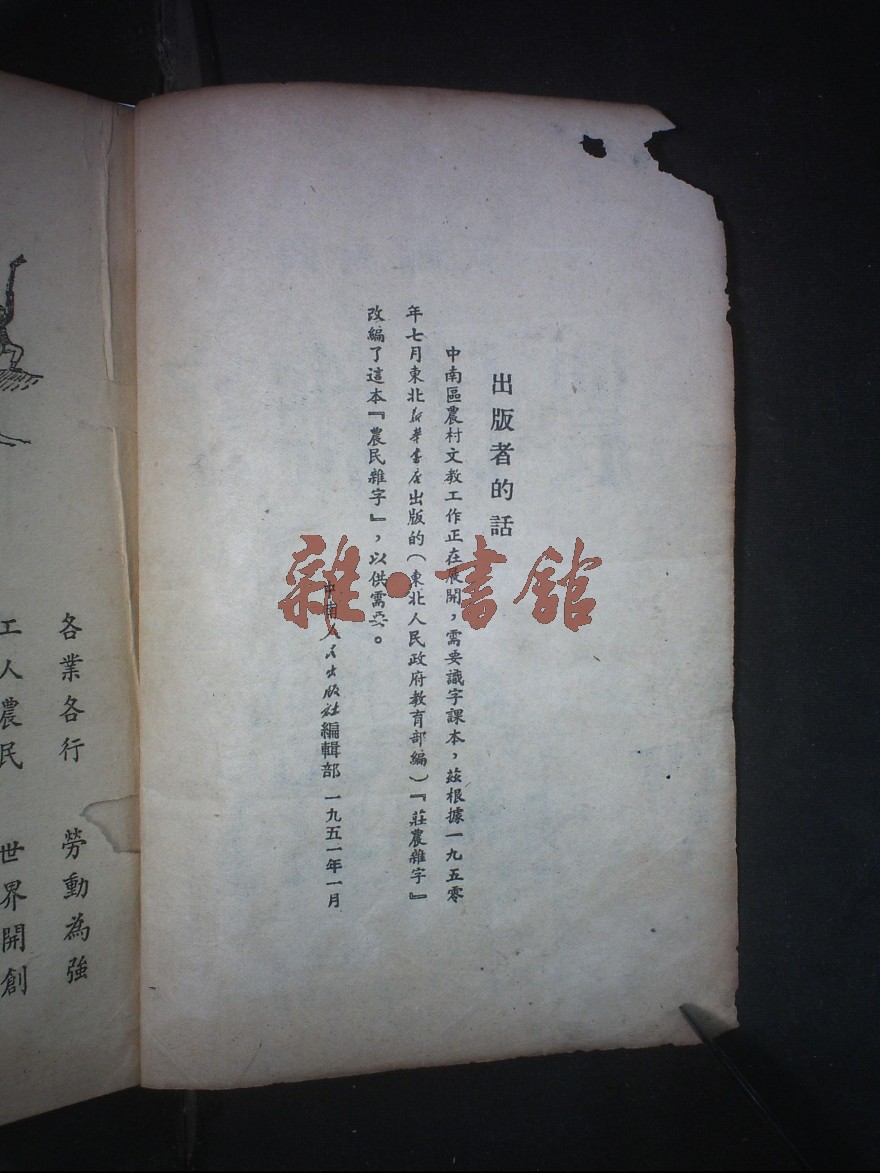 出版者的話
中南區農村文教工作正在展開，需要識字課本，茲根據一九五零
年七月東北新華書店出版的（東北人民政府教育部編）『莊農雜字』
改編了這本『農民雜字』，以供需要。
中南人民出版社編輯部 一九五一年一月
各業各行 勞動為強
工人農民 世界開創
雜·書館